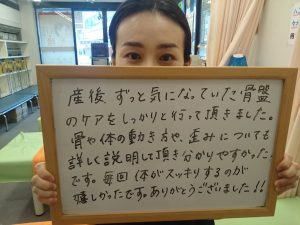 産後ずっと気になっていた骨盤
のケアをしっかりと行って頂きました。
骨や体の動き方や、歪みについても
詳しく説明して頂き分かりやすかった
です。毎回体がスッキリするのが
嬉しかったです。ありがとうございました!!